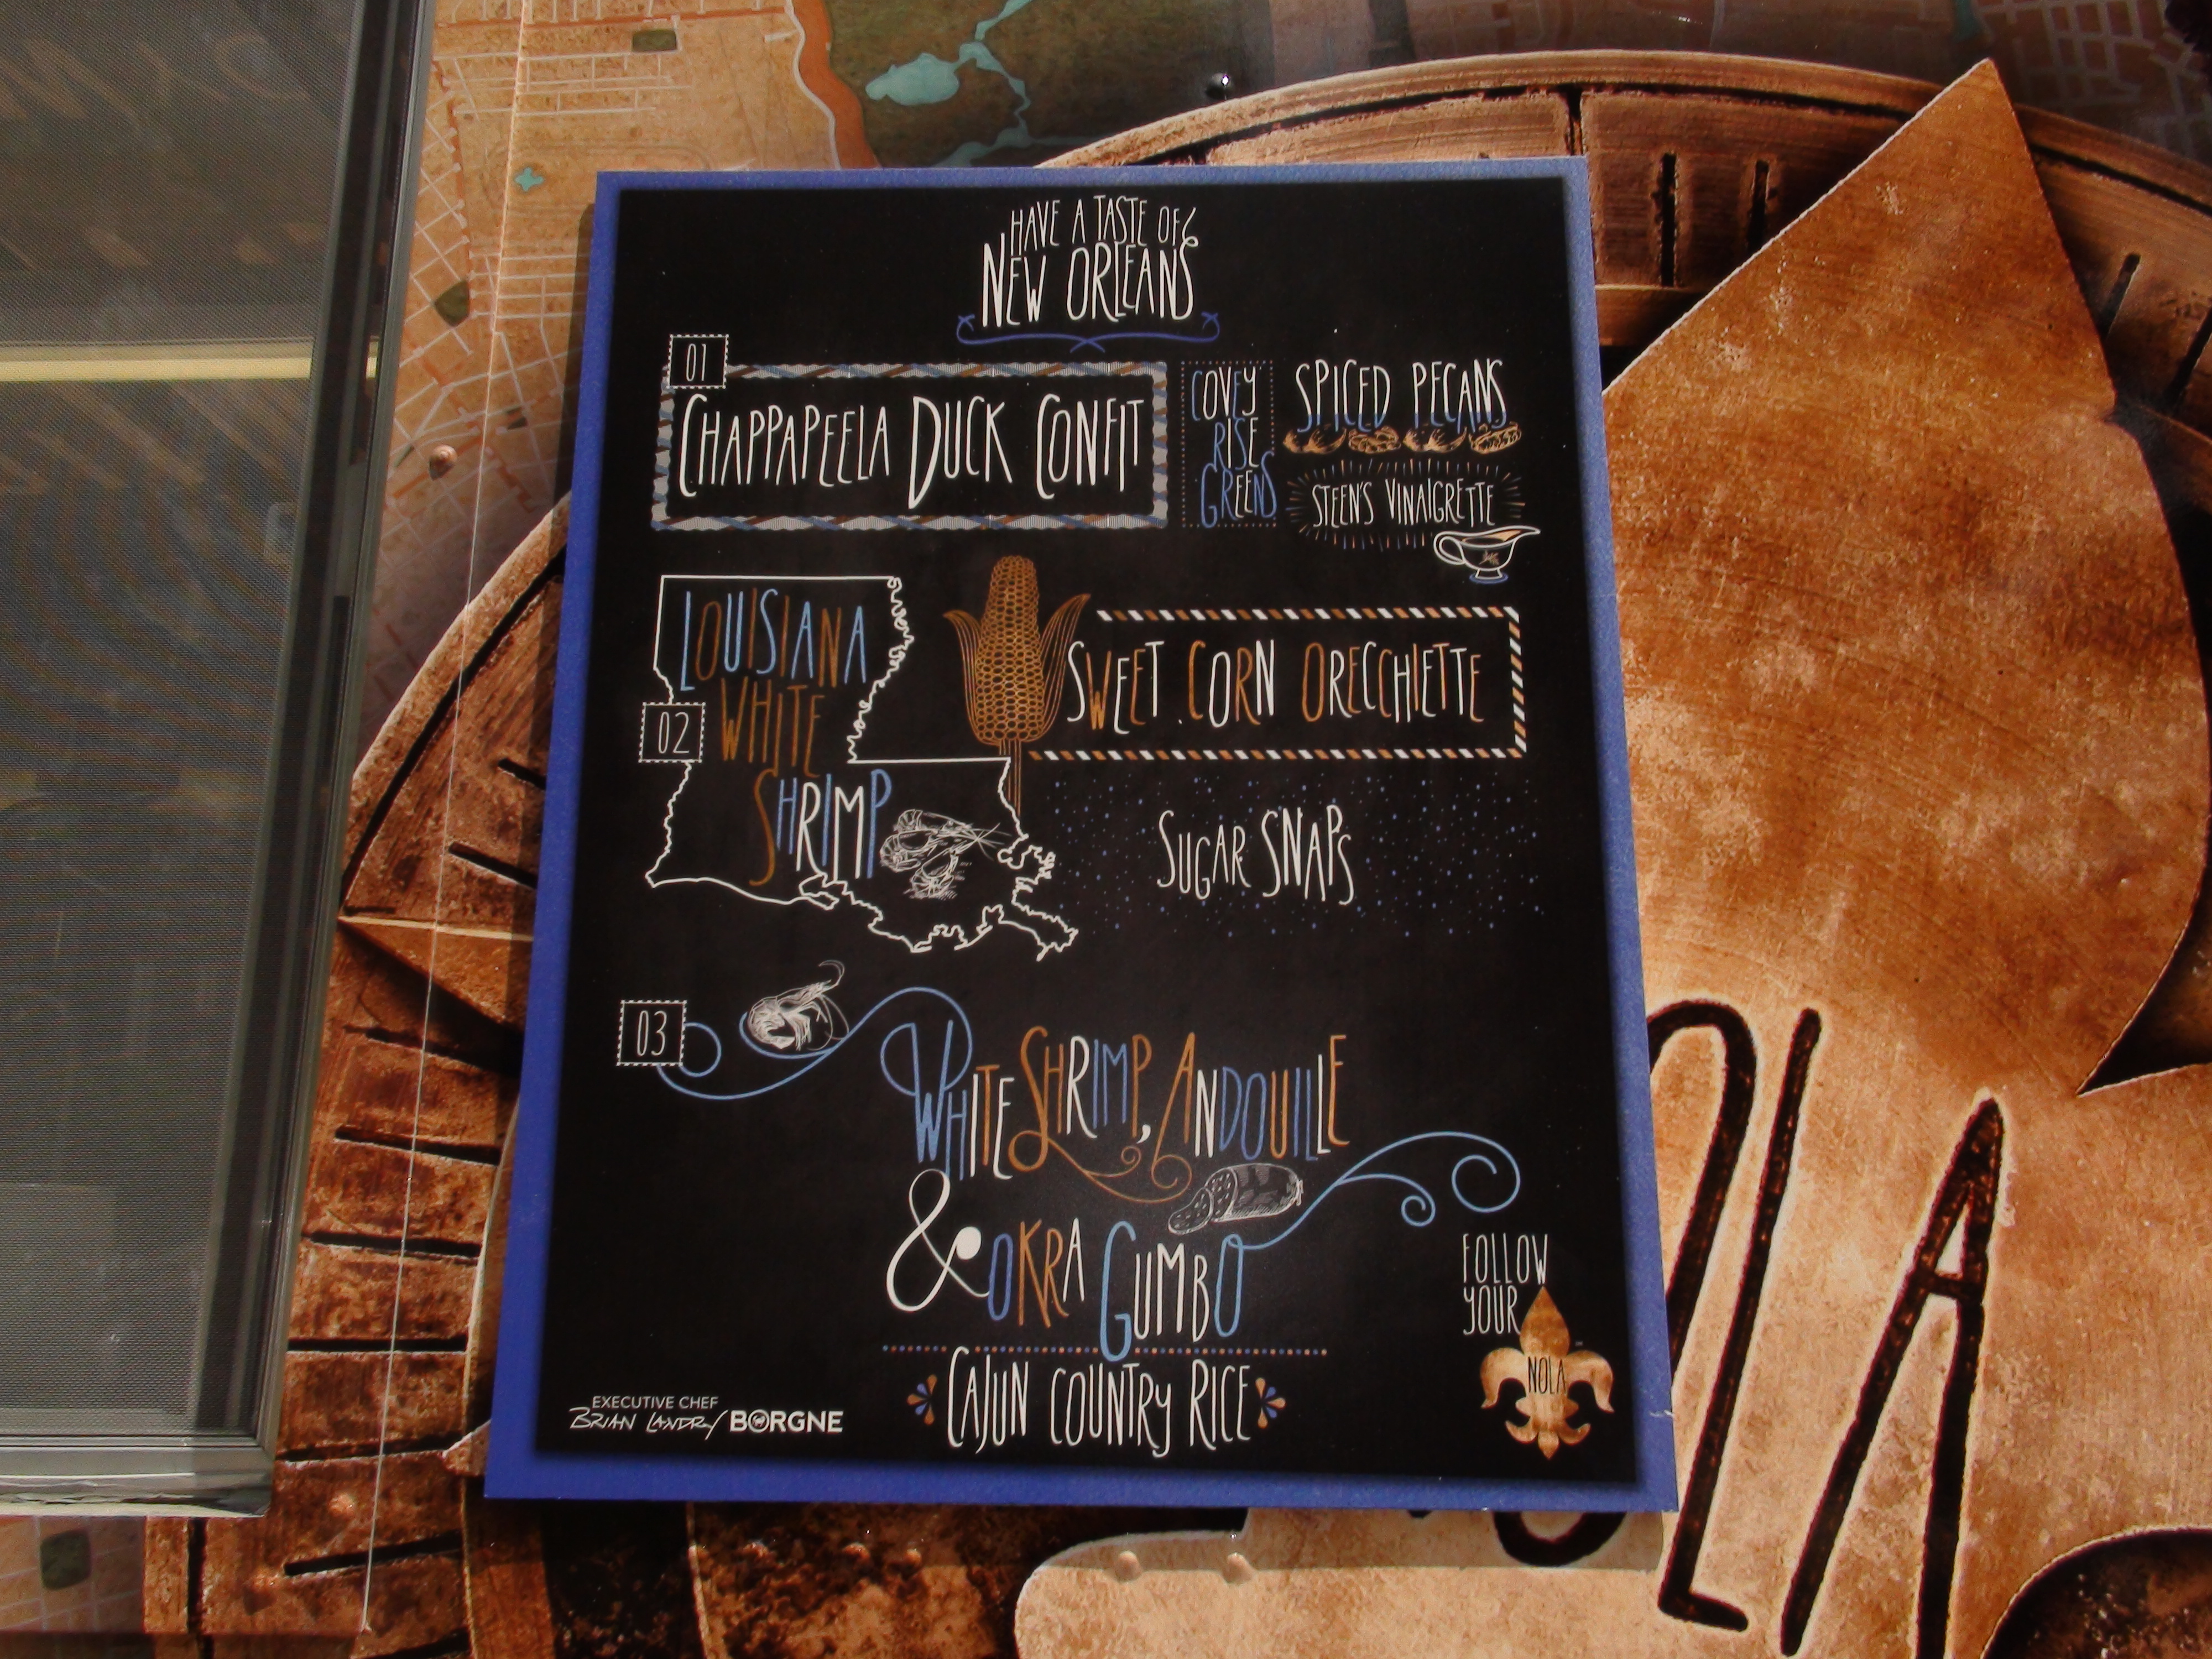 HAVE A TASTE OF
NEW ORLEANS
01
CHAPPAPEELA DUCK CONFIT
COVEY
RISE
GREENS
SPICED PECANS
STEEN'S VINAIGRETTE
LOUISIANA
WHITE
SHRIMP
02
SWEET CORN ORECCHIETTE
SUGAR SNAPS
03
WHITE SHRIMP, ANDOUILLE
& OKRA GUMBO
CAJUN COUNTRY RICE
EXECUTIVE CHEF
BRIAN LANDRY BORGNE
FOLLOW
YOUR
NOLA
OLA